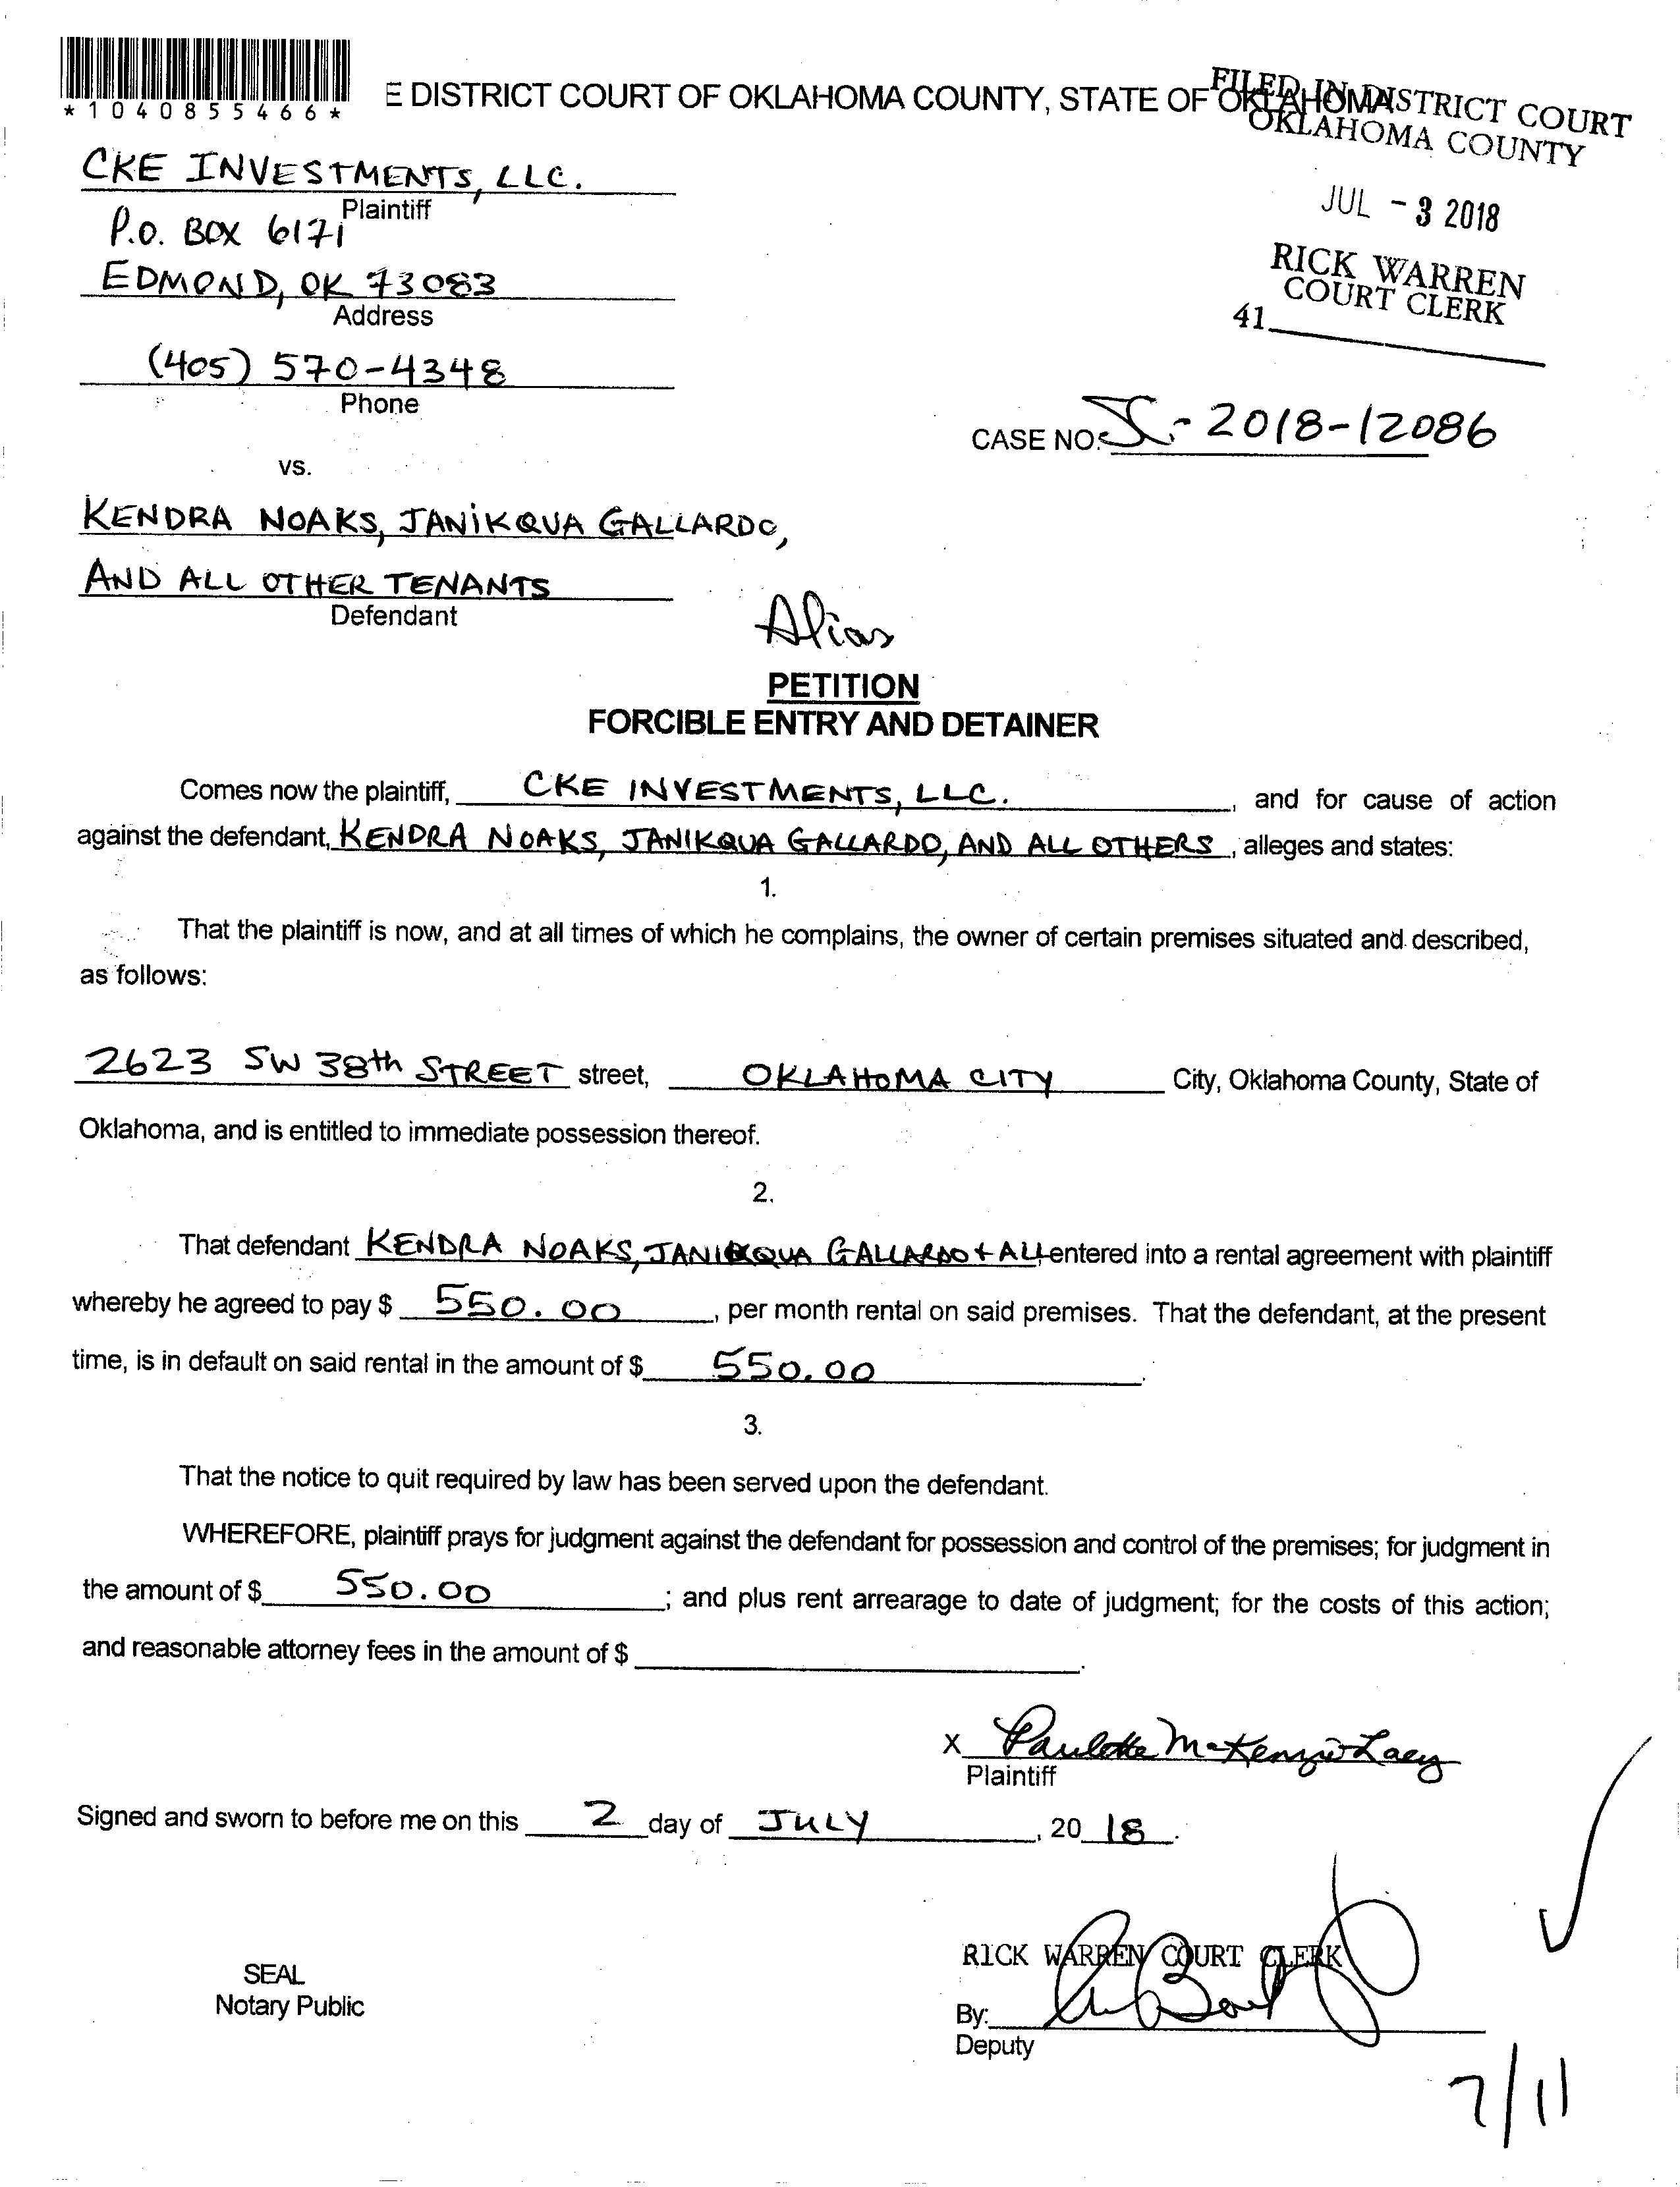 *1040855466*
E DISTRICT COURT OF OKLAHOMA COUNTY, STATE OF OKLAHOMA
FILED IN DISTRICT COURT
OKLAHOMA COUNTY
JUL - 3 2018
RICK WARREN
COURT CLERK
41
CKE INVESTMENTS, LLC.
Plaintiff
P.O. BOX 6171
EDMOND, OK 73083
Address
(405) 570-4348
Phone
CASE NO. SC-2018-12086
vs.
KENDRA NOAKS, JANIKQUA GALLARDO,
AND ALL OTHER TENANTS
Defendant
Alias
PETITION
FORCIBLE ENTRY AND DETAINER
Comes now the plaintiff, CKE INVESTMENTS, LLC., and for cause of action
against the defendant, KENDRA NOAKS, JANIKQUA GALLARDO, AND ALL OTHERS, alleges and states:
1.
That the plaintiff is now, and at all times of which he complains, the owner of certain premises situated and described,
as follows:
2623 SW 38th STREET street, OKLAHOMA CITY City, Oklahoma County, State of
Oklahoma, and is entitled to immediate possession thereof.
2.
That defendant KENDRA NOAKS, JANIKQUA GALLARDO + ALL entered into a rental agreement with plaintiff
whereby he agreed to pay $ 550.00, per month rental on said premises. That the defendant, at the present
time, is in default on said rental in the amount of $ 550.00.
3.
That the notice to quit required by law has been served upon the defendant.
WHEREFORE, plaintiff prays for judgment against the defendant for possession and control of the premises; for judgment in
the amount of $ 550.00; and plus rent arrearage to date of judgment; for the costs of this action;
and reasonable attorney fees in the amount of $ .
X Paulette McKenzie Lacy
Plaintiff
Signed and sworn to before me on this 2 day of JULY, 2018.
SEAL
Notary Public
RICK WARREN COURT CLERK
By:
Deputy
7/11